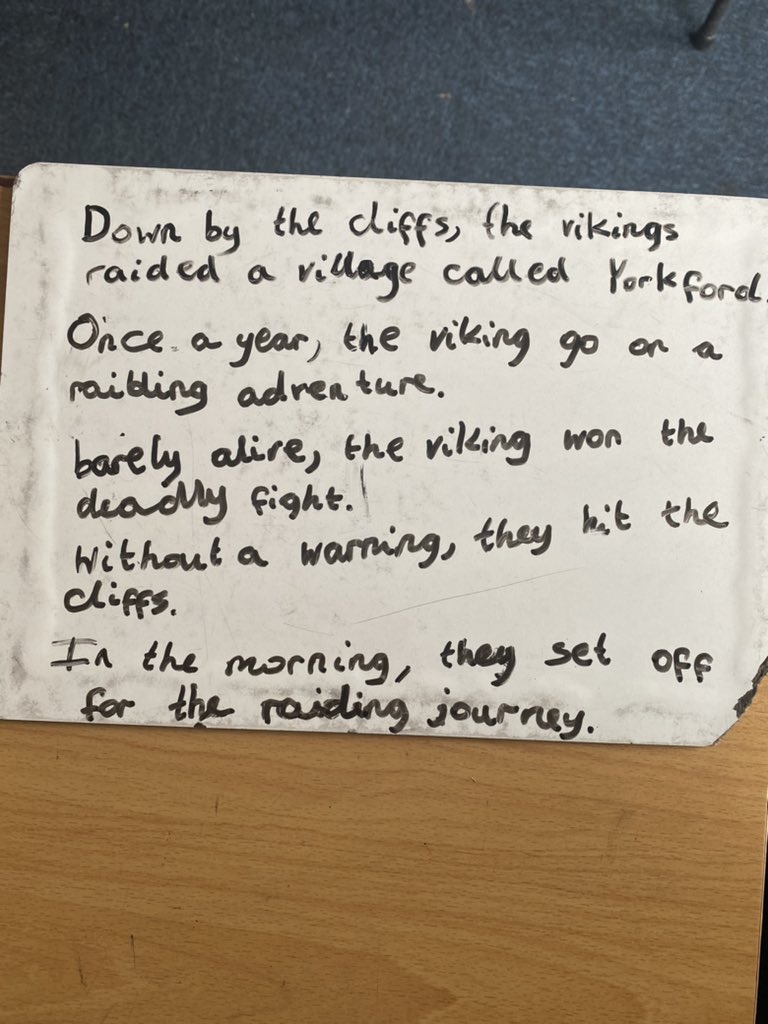 Down by the cliffs, the vikings
raided a village called Yorkford.
Once a year, the viking go on a
raiding adventure.
barely alive, the viking won the
deadly fight.
Without a warning, they hit the
cliffs.
In the morning, they set off
for the raiding journey.